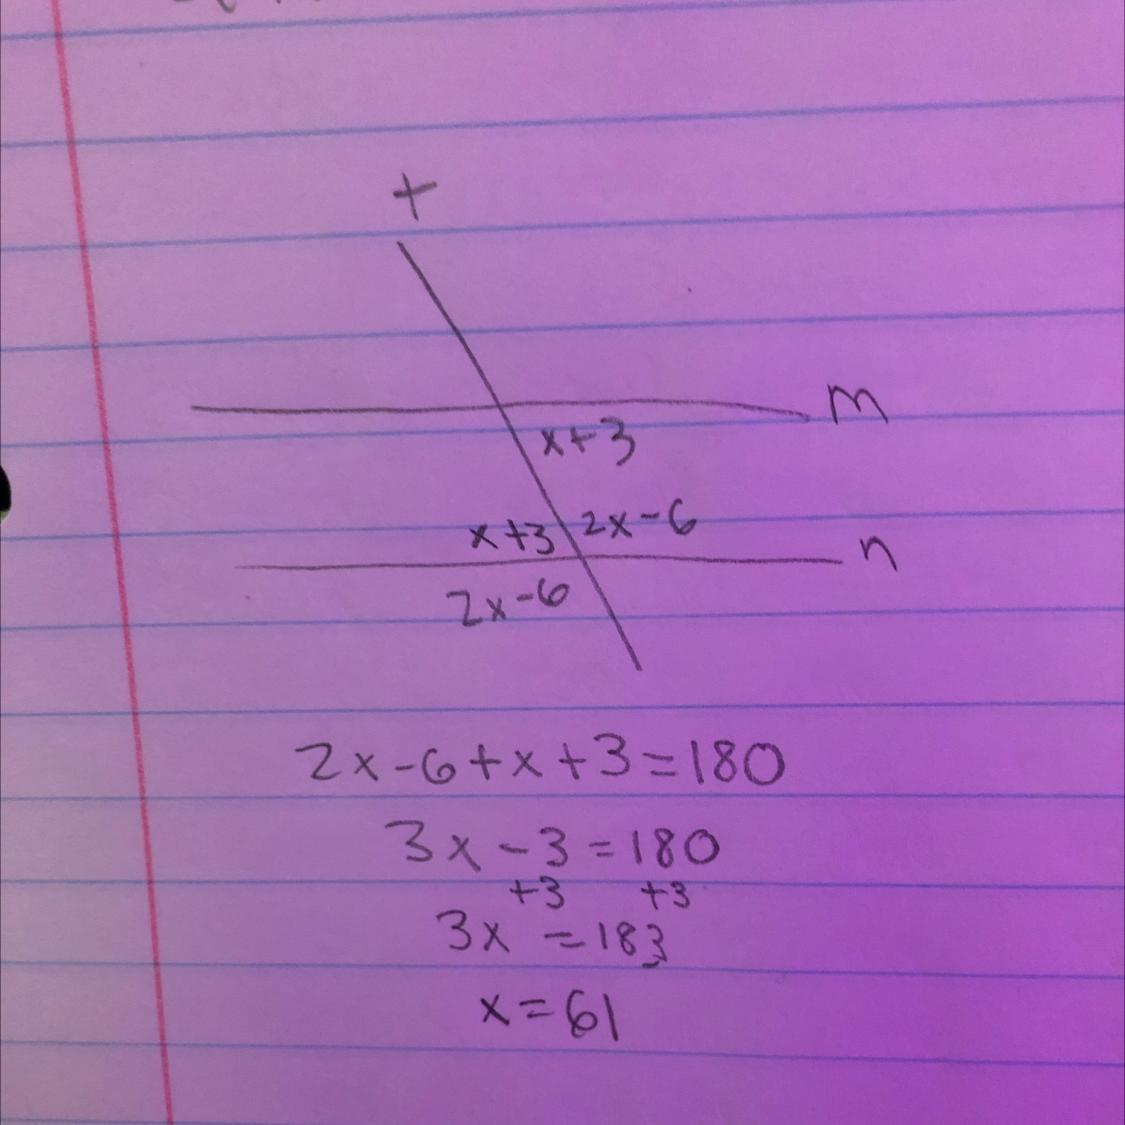 t
m
x+3
x+3 2x-6
n
2x-6
2x-6+x+3=180
3x-3=180
+3 +3
3x =183
x=61